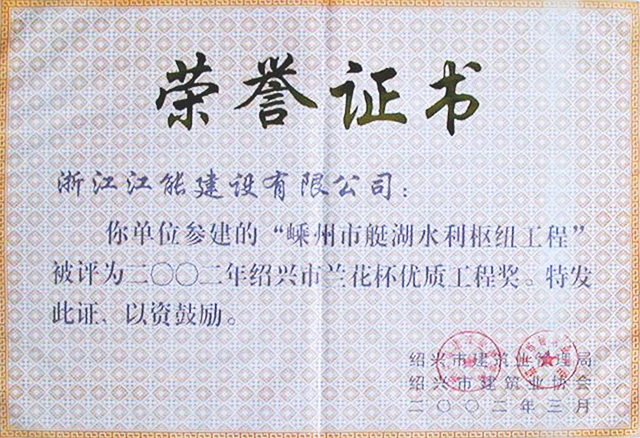 荣誉证书
浙江江能建设有限公司：
你单位参建的“嵊州市艇湖水利枢纽工程”
被评为二〇〇二年绍兴市兰花杯优质工程奖。特发
此证、以资鼓励。
绍兴市建筑业管理局
绍兴市建筑业协会
二〇〇二年三月